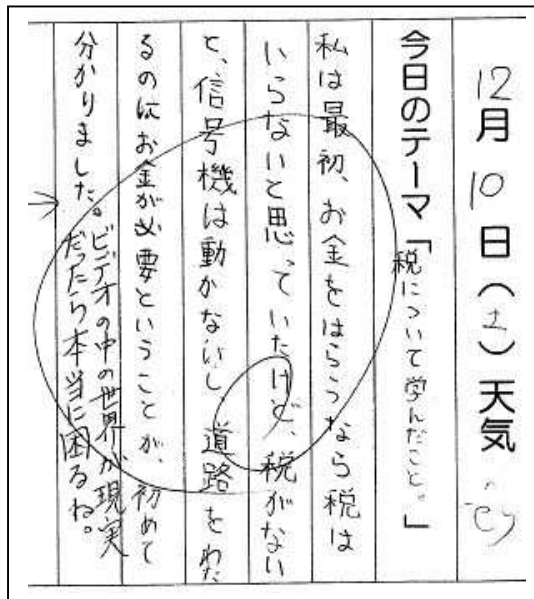 12月10日(土)天気
今日のテーマ「税について学んだこと。」
私は最初、お金をはらうなら税は
いらないと思っていたけど、税がない
と、信号機は動かないし道路をわた
るのにお金が必要ということが、初めて
分かりました。
ビデオの中の世界が、現実
だったら本当に困るね。